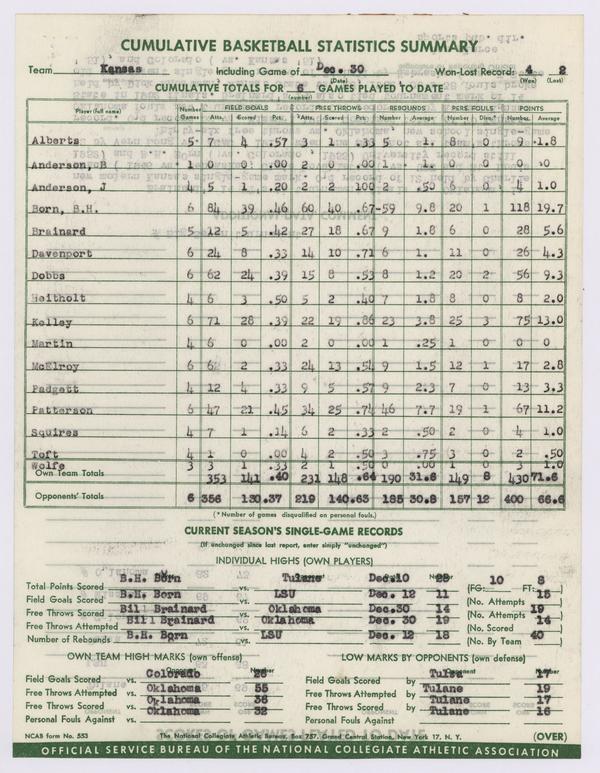 CUMULATIVE BASKETBALL STATISTICS SUMMARY
Team Kansas Including Game of Dec. 30 (Date) Won-Lost Record: 4 2
(Won) (Lost)
CUMULATIVE TOTALS FOR 6 GAMES PLAYED TO DATE
(number)
Player (full name) Number Games FIELD GOALS Atts. Scored Pct. FREE THROWS Atts. Scored Pct. REBOUNDS Number Average PERS. FOULS Number Disq.* POINTS Number Average
Alberts 5 7 4 .57 3 1 .33 5 1. 8 0 9 1.8
Anderson, B 1 0 0 .00 2 0 .00 1 1. 0 0 0 .0
Anderson, J 4 5 1 .20 2 2 100 2 .50 6 0 4 1.0
Born, B.H. 6 84 39 .46 60 40 .67 59 9.8 20 1 118 19.7
Brainard 5 12 5 .42 27 18 .67 9 1.8 6 0 28 5.6
Davenport 6 24 8 .33 14 10 .71 6 1. 11 0 26 4.3
Dobbs 6 62 24 .39 15 8 .53 8 1.2 20 2 56 9.3
Heitholt 4 6 3 .50 5 2 .40 7 1.8 8 0 8 2.0
Kelley 6 71 28 .39 22 19 .86 23 3.8 25 3 75 13.0
Martin 4 6 0 .00 2 0 .00 1 .25 1 0 0 0
McElroy 6 6 2 .33 24 13 .54 9 1.5 12 1 17 2.8
Padgett 4 12 4 .33 9 5 .57 9 2.3 7 0 13 3.3
Patterson 6 47 21 .45 34 25 .74 46 7.7 19 1 67 11.2
Squires 4 7 1 .14 6 2 .33 2 .50 2 0 4 1.0
Toft 4 1 0 .00 4 2 .50 3 .75 3 0 2 .50
Wolfe 3 3 1 .33 2 1 .50 0 .00 1 0 3 1.0
Own Team Totals 353 141 .40 231 148 .64 190 31.6 149 8 430 71.6
Opponents' Totals 6 356 130 .37 219 140 .63 185 30.8 157 12 400 66.6
(* Number of games disqualified on personal fouls.)
CURRENT SEASON'S SINGLE-GAME RECORDS
(If unchanged since last report, enter simply "unchanged")
INDIVIDUAL HIGHS (OWN PLAYERS)
Total Points Scored B.H. Born vs. Tulane Dec. 10 28 (FG: 10 FT: 8)
Field Goals Scored B.H. Born vs. LSU Dec. 12 11 (No. Attempts 15)
Free Throws Scored Bill Brainard vs. Oklahoma Dec. 30 14 (No. Attempts 19)
Free Throws Attempted Bill Brainard vs. Oklahoma Dec. 30 19 (No. Scored 14)
Number of Rebounds B.H. Born vs. LSU Dec. 12 18 (No. By Team 40)
OWN TEAM HIGH MARKS (own offense)
Field Goals Scored vs. Colorado
Free Throws Attempted vs. Oklahoma 55
Free Throws Scored vs. Oklahoma 38
Personal Fouls Against vs. Oklahoma 32
LOW MARKS BY OPPONENTS (own defense)
Field Goals Scored by Tulsa 17
Free Throws Attempted by Tulane 19
Free Throws Scored by Tulane 17
Personal Fouls Against by Tulane 16
NCAB form No. 553 The National Collegiate Athletic Bureau, Box 757, Grand Central Station, New York 17, N. Y. (OVER)
OFFICIAL SERVICE BUREAU OF THE NATIONAL COLLEGIATE ATHLETIC ASSOCIATION